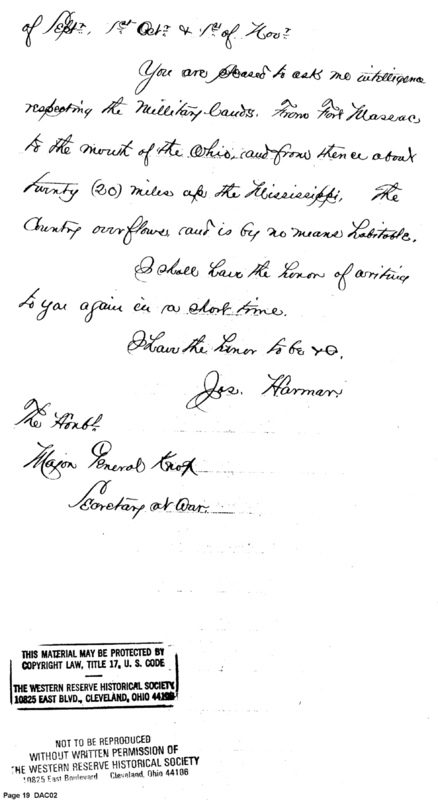 of Sept., 1st Octr. & 1st of Novr.
You are pleased to ask me intelligence
respecting the Millitary lands. From Fort Massac
to the mouth of the Ohio, and from thence about
twenty (20) miles up the Mississippi, the
Country overflows and is by no means habitable.
I shall have the honor of writing
to you again in a short time.
I have the honor to be &c.
Jos. Harmar
The Honbl.
Major General Knox
Secretary at War.
THIS MATERIAL MAY BE PROTECTED BY
COPYRIGHT LAW, TITLE 17, U. S. CODE
THE WESTERN RESERVE HISTORICAL SOCIETY
10825 EAST BLVD., CLEVELAND, OHIO 44106
NOT TO BE REPRODUCED
WITHOUT WRITTEN PERMISSION OF
THE WESTERN RESERVE HISTORICAL SOCIETY
10825 East Boulevard Cleveland, Ohio 44106
Page 19 DAC02